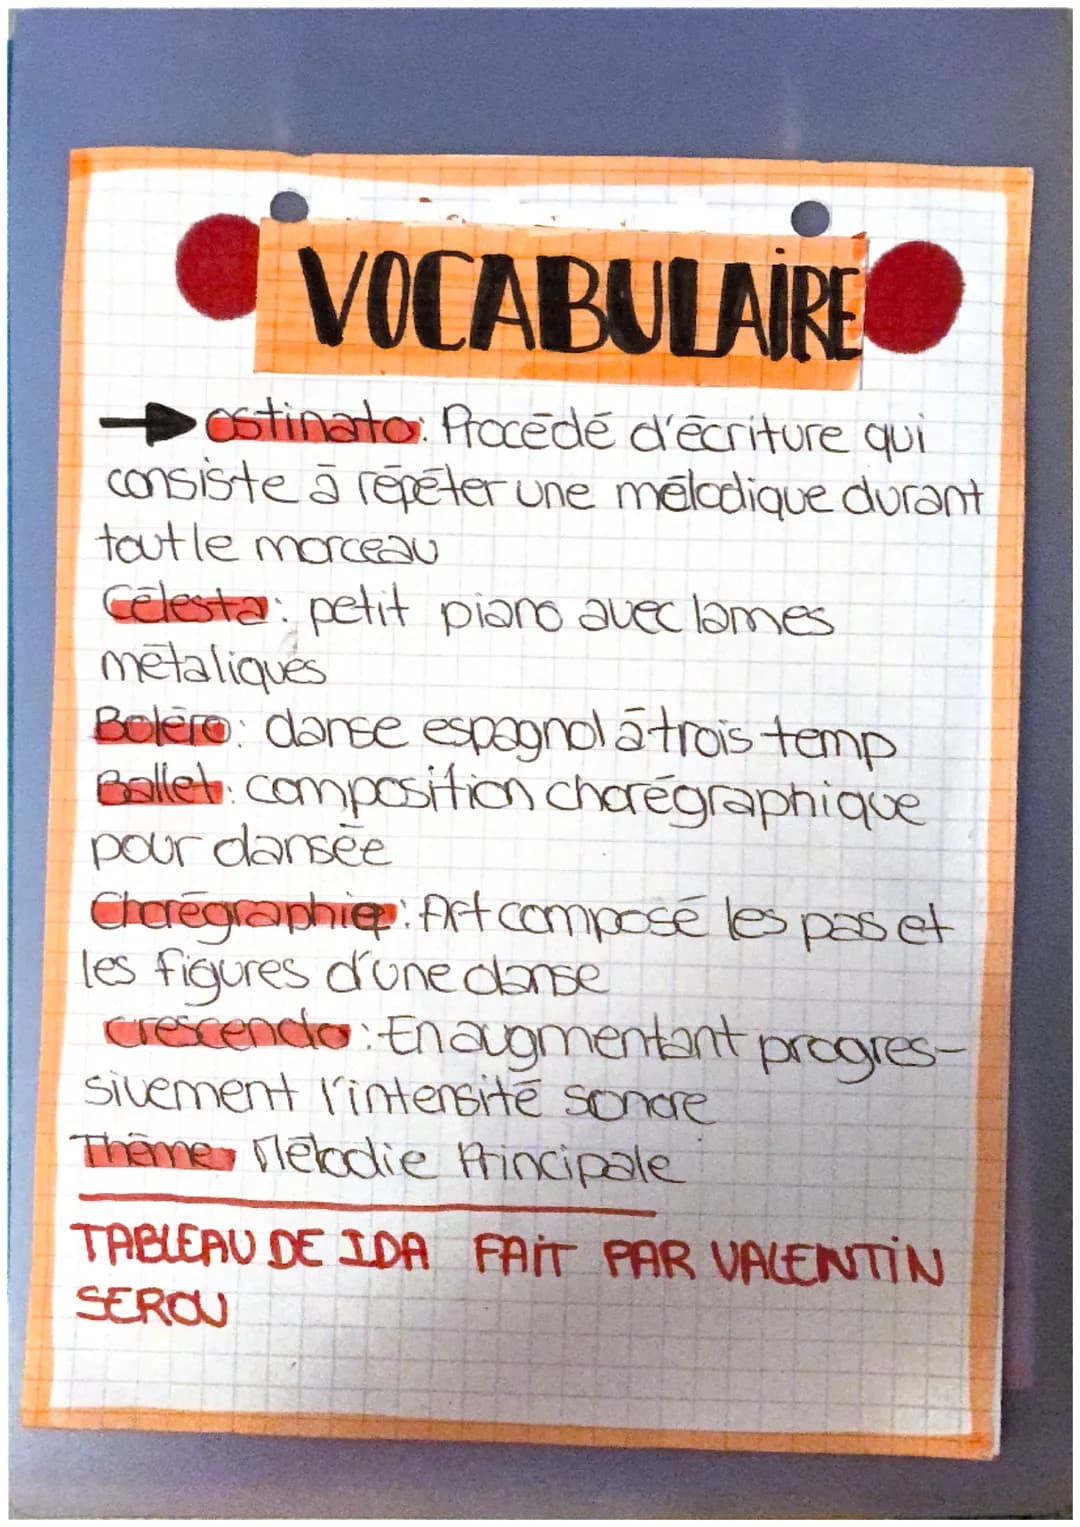 VOCABULAIRE
→ ostinato: Procédé d'écriture qui
consiste à répéter une mélodique durant
tout le morceau
Célesta: petit piano avec lames
métaliques
Boléro: danse espagnol à trois temp
Ballet: composition chorégraphique
pour dansée
Chorégraphie: Art composé les pas et
les figures d'une danse
crescendo: En augmentant progres-
sivement l'intensité sonore
Thème Mélodie Principale
TABLEAU DE IDA FAIT PAR VALENTIN
SEROU